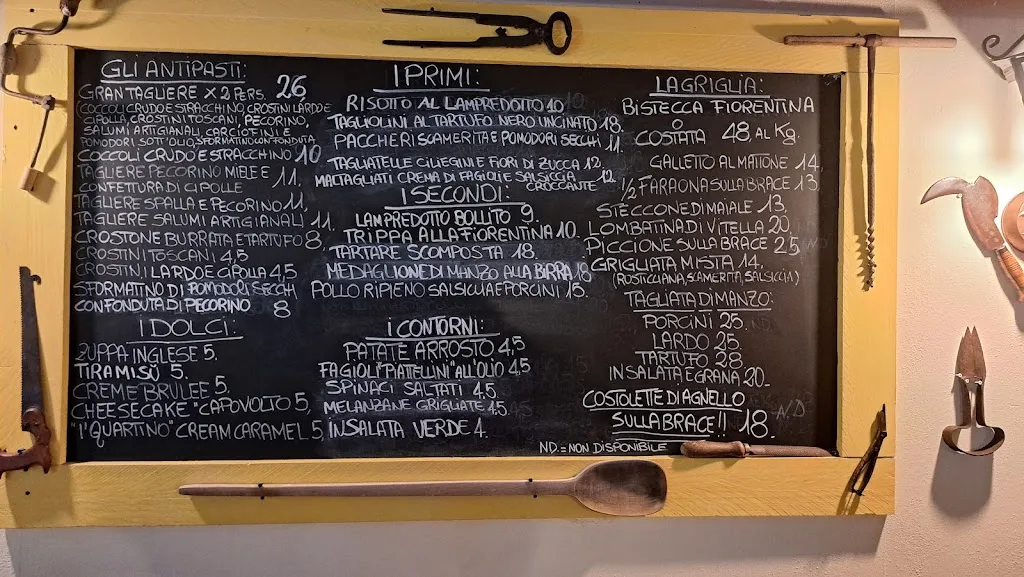 GLI ANTIPASTI:
GRAN TAGLIERE X 2 PERS. 26
(COCCOLI CRUDO E STRACCHINO CROSTINI LARDO E
CIPOLLA, CROSTINI TOSCANI, PECORINO,
SALUMI ARTIGIANALI, CARCIOFINI E
POMODORI SOTT'OLIO, SFORMATINO CON FONDUTA)
COCCOLI CRUDO E STRACCHINO 10
TAGLIERE PECORINO MIELE E
CONFETTURA DI CIPOLLE 11,
TAGLIERE SPALLA E PECORINO 11,
TAGLIERE SALUMI ARTIGIANALI 11.
CROSTONE BURRATA E TARTUFO 8,
CROSTINI TOSCANI 4,5
CROSTINI LARDO E CIPOLLA 4,5
SFORMATINO DI POMODORI SECCHI
CON FONDUTA DI PECORINO 8
I DOLCI:
ZUPPA INGLESE 5.
TIRAMISÙ 5.
CREME BRULEE 5.
CHEESECAKE "CAPOVOLTO 5,
"l'QUARTINO" CREAM CARAMEL 5,
I PRIMI:
RISOTTO AL LAMPREDOTTO 10
TAGLIOLINI AL TARTUFO NERO UNCINATO 18,
PACCHERI SCAMERITA E POMODORI SECCHI 11,
TAGLIATELLE CILIEGINI E FIORI DI ZUCCA 12,
MALTAGLIATI CREMA DI FAGIOLI E SALSICCIA
CROCCANTE 12,
I SECONDI:
LAMPREDOTTO BOLLITO 9.
TRIPPA ALLA FIORENTINA 10.
TARTARE SCOMPOSTA 18.
MEDAGLIONE DI MANZO ALLA BIRRA 18
POLLO RIPIENO SALSICCIA E PORCINI 15.
I CONTORNI:
PATATE ARROSTO 4,5
FAGIOLI "PIATELLINI" ALL'OLIO 4,5
SPINACI SALTATI 4,5
MELANZANE GRIGLIATE 4.5
INSALATA VERDE 4.
LA GRIGLIA:
BISTECCA FIORENTINA
O
COSTATA 48, AL Kg.
GALLETTO AL MATTONE 14,
1/2 FARAONA SULLA BRACE 13,
STECCONE DI MAIALE 13,
LOMBATINA DI VITELLA 20,
PICCIONE SULLA BRACE 25
GRIGLIATA MISTA 14.
(ROSTICCIANA, SCAMERITA, SALSICCIA)
TAGLIATA DI MANZO:
PORCINI 25.
LARDO 25.
TARTUFO 28
INSALATA E GRANA 20.
COSTOLETTE DI AGNELLO
SULLA BRACE!! 18. -ND
ND.=NON DISPONIBILE